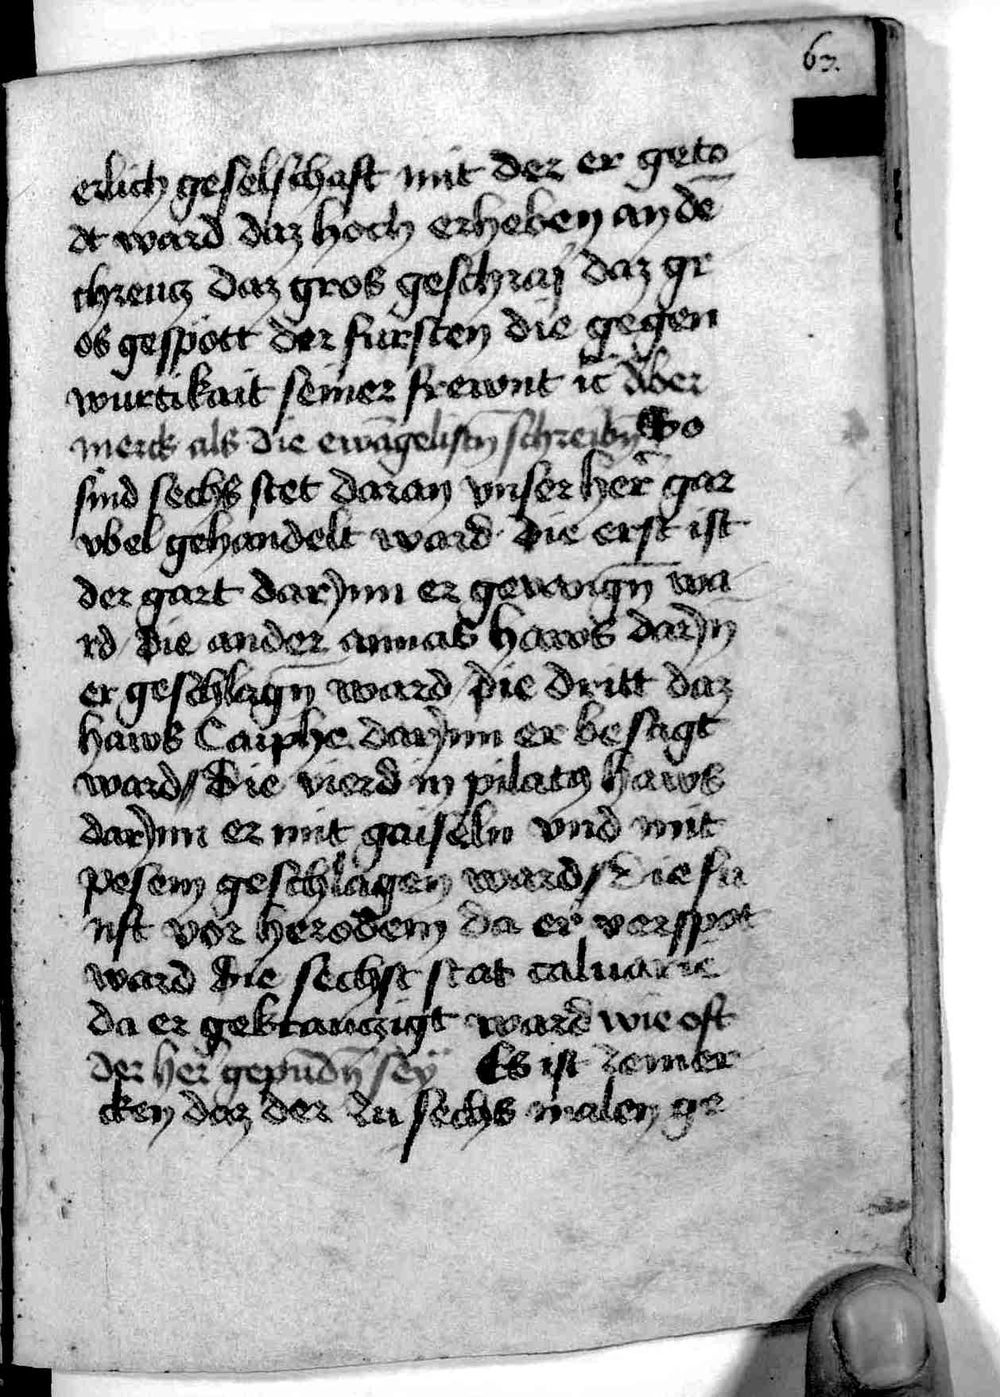 63.
erlich geselschaft mit der er geto
dt ward daz hoch erheben an dē
chreucz daz gros geschray daz gr
os gespött der fursten die gegen
wurtikait seiner frewnt ꝛc Aber
merck als die ewāgelistn̄ schreibn̄ So
sind sechs stet daran vnser her̄ gar
vbel gehandelt ward · Die erst ist
der gart darynn er gevangn̄ wa
rd / Die ander annas haws daryn
er geschlagn̄ ward / Die dritt daz
haws Caiphe darynn er besagt
ward // Die vierd in pilatus haws
darynn er mit gaiseln vnd mit
pesem geschlagen ward // Die fu
nft vor herodem da er verspot
ward Die sechst stat caluarie
da er gekrauczigt ward wie oft
der her̄ gepūdn̄ sey Es ist zemer
cken daz der zu sechs malen ge